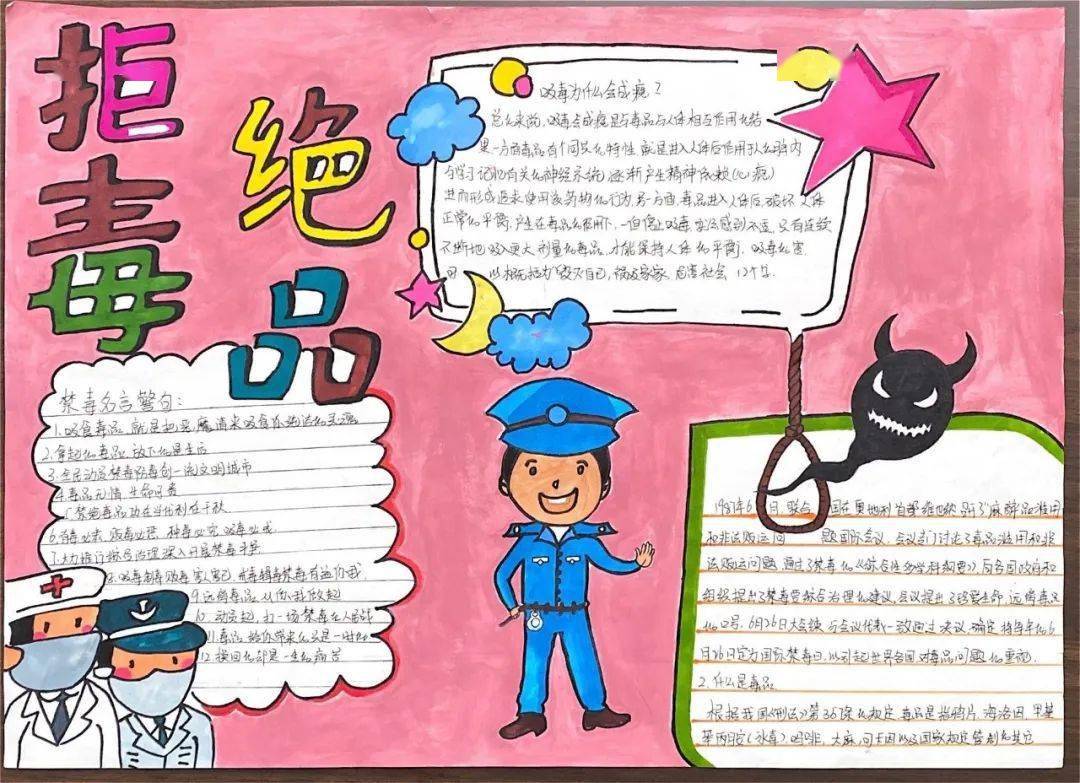 拒绝
毒品
吸毒为什么会成瘾？
总的来说，吸毒会成瘾是与毒品与人体相互作用的结
果一方面毒品有个同共的特性，就是进入人体后作用于人的脑内
与学习记忆有关的神经系统，逐渐产生精神依赖(心瘾)
进而形成追求使用该药物的行为，另一方面，毒品进入人体后，破坏人体
正常的平衡，产生在毒品的作用下，一但停止吸毒，就会感到不适，只有连续
不断地吸入更大剂量的毒品，才能保持人体的平衡，吸毒的危
以概括为"毁灭自己，祸及家家，危害社会 12个字。
禁毒名言警句：
1.吸食毒品，就是把恶魔请来吸食你纯洁的灵魂
2.拿起的毒品，放下的是生活
3.全民动员禁毒防毒创一流文明城市
4.毒品无情，生命可贵
5.禁绝毒品功在当代利在千秋
6.有毒必肃，贩毒必惩，种毒必究，吸毒必戒
深入开展禁毒斗争
8.吸毒制毒贩毒
9.远离毒品，从你我做起
10.动员起，打一场禁毒人民战
11.毒品给你带来的只是一时的
12.换回的却是一生的痛苦
1987年6 日，联合 国在奥地利首都维也纳召开了"麻醉品滥用
和非法贩运问 题国际会议，会议专门讨论了毒品滥用和非
法贩运问题，通过了禁毒的《综合性多学科纲要》，向各国政府和
组织提出了禁毒
的口号。6月26日大会 与会议代表一致通过决议，确定将每年的6
月26日定为国际禁毒日，以引起世界各国对毒品问题的重视。
2.什么是毒品
根据我国《刑法》第357条的规定，毒品是指鸦片、海洛因、甲基
苯丙胺(冰毒)吗啡，大麻，可卡因以及国家规定管制的其它